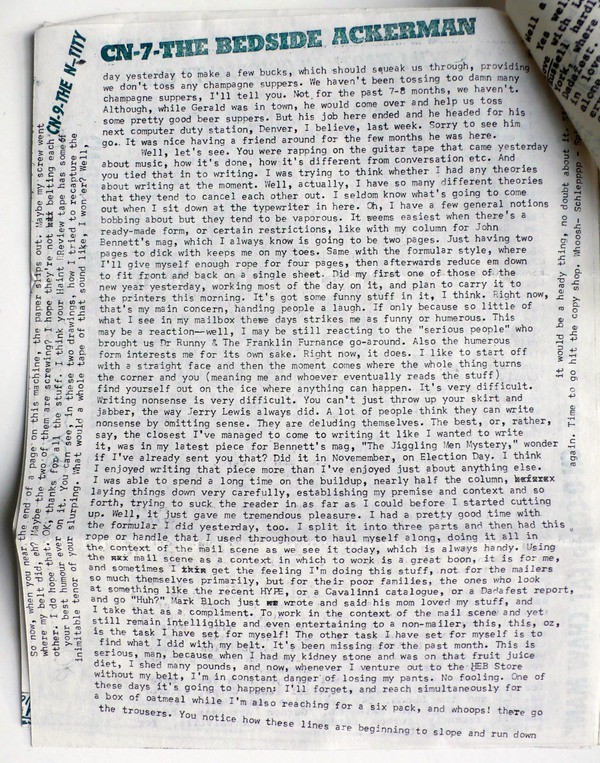 CN-7-THE BEDSIDE ACKERMAN
day yesterday to make a few bucks, which should squeak us through, providing
we don't toss any champagne suppers. We haven't been tossing too damn many
champagne suppers, I'll tell you. Not for the past 7-8 months, we haven't.
Although, while Gerald was in town, he would come over and help us toss
some pretty good beer suppers. But his job here ended and he headed for his
next computer duty station, Denver, I believe, last week. Sorry to see him
go. It was nice having a friend around for the few months he was here.
Well, let's see. You were rapping on the guitar tape that came yesterday
about music, how it's done, how it's different from conversation etc. And
you tied that in to writing. I was trying to think whether I had any theories
about writing at the moment. Well, actually, I have so many different theories
that they tend to cancel each other out. I seldom know what's going to come
out when I sit down at the typewriter in here. Oh, I have a few general notions
bobbing about but they tend to be vaporous. It seems easiest when there's a
ready-made form, or certain restrictions, like with my column for John
Bennett's mag, which I always know is going to be two pages. Just having two
pages to dick with keeps me on my toes. Same with the formular style, where
I'll give myself enough rope for four pages, then afterwards reduce em down
to fit front and back on a single sheet. Did my first one of those of the
new year yesterday, working most of the day on it, and plan to carry it to
the printers this morning. It's got some funny stuff in it, I think. Right now,
that's my main concern, handing people a laugh. If only because so little of
what I see in my mailbox these days strikes me as funny or humorous. This
may be a reaction--well, I may be still reacting to the "serious people" who
brought us Dr Runny & The Franklin Furnance go-around. Also the humorous
form interests me for its own sake. Right now, it does. I like to start off
with a straight face and then the moment comes where the whole thing turns
the corner and you (meaning me and whoever eventually reads the stuff)
find yourself out on the ice where anything can happen. It's very difficult.
Writing nonsense is very difficult. You can't just throw up your skirt and
jabber, the way Jerry Lewis always did. A lot of people think they can write
nonsense by omitting sense. They are deluding themselves. The best, or, rather,
say, the closest I've managed to come to writing it like I want to write
it, was in my latest piece for Bennett's mag, "The Jiggling Men Mystery," wonder
if I've already sent you that? Did it in November, on Election Day. I think
I enjoyed writing that piece more than I've enjoyed just about anything else.
I was able to spend a long time on the buildup, nearly half the column,
laying things down very carefully, establishing my premise and context and so
forth, trying to suck the reader in as far as I could before I started cutting
up. Well, it just gave me tremendous pleasure. I had a pretty good time with
the formular I did yesterday, too. I split it into three parts and then had this
rope or handle that I used throughout to haul myself along, doing it all in
the context of the mail scene as we see it today, which is always handy. Using
the mail scene as a context in which to work is a great boon, it is for me,
and sometimes I get the feeling I'm doing this stuff, not for the mailers
so much themselves primarily, but for their poor families, the ones who look
at something like the recent HYPE, or a Cavalinni catalogue, or a Dadafest report,
and go "Huh?" Mark Bloch just wrote and said his mom loved my stuff, and
I take that as a compliment. To work in the context of the mail scene and yet
still remain intelligible and even entertaining to a non-mailer, this, this, oz,
is the task I have set for myself! The other task I have set for myself is to
find what I did with my belt. It's been missing for the past month. This is
serious, man, because when I had my kidney stone and was on that fruit juice
diet, I shed many pounds, and now, whenever I venture out to the HEB Store
without my belt, I'm in constant danger of losing my pants. No fooling. One of
these days it's going to happen: I'll forget, and reach simultaneously for
a box of oatmeal while I'm also reaching for a six pack, and whoops! there go
the trousers. You notice how these lines are beginning to slope and run down
So now, when you near the end of a page on this machine, the paper slips out. Maybe my screw went
where my belt did, eh? Maybe the two of them are screwing? I hope they're not belting each
other. I do hope that. OK, thanks for all the stuff. I think your Haint Review tape has some of
your best humour ever on it. You can see, in these two drawings, how I tried to recapture the
inimitable tenor of your slurping. What would a whole tape of that sound like, I wonder? Well,
CN-9-THE N-TITY
it would be a heady thing, no doubt about it.
again. Time to go hit the copy shop. Whoosh- Schlepppp -